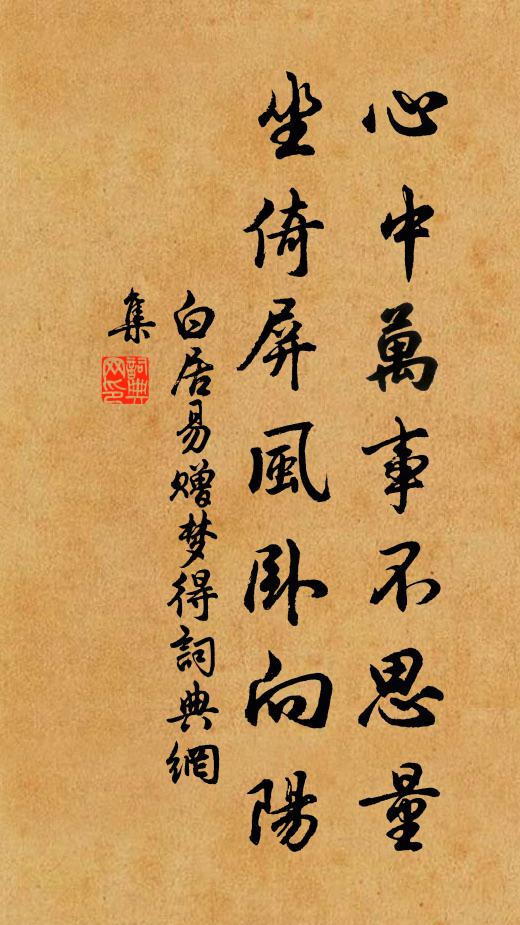 心中萬事不思量
坐倚屏風卧向陽
白居易赠梦得詞典網
集
詞典网印